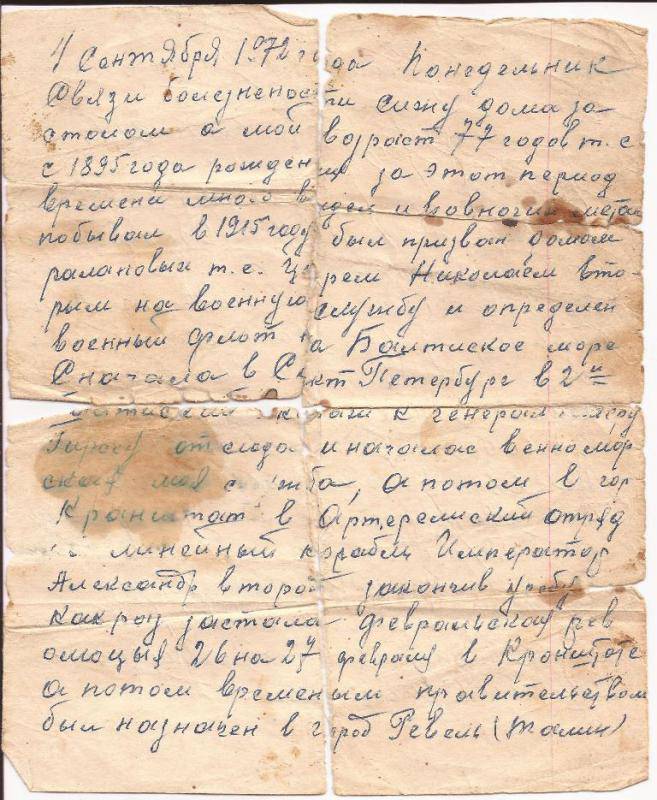 4 Сентября 1972 года Понедельник
Связи болезнености сижу дома за
столом а мой возраст 77 годов т.е
с 1895 года рождения за этот период
времени много видел и вовногих местах
побывал в 1915 году был призван домом
рамановых т.е. Царем Николаем вто-
рым на военную службу и определен
военный флот на Балтиское море
Сначала в Санкт Петербург в 2й
к генерал
отсюда и началас венно мор
ская моя служба, а потом в гор
Кранштат в Артерелиский отряд
на линейный корабль Император
Александр второй закончив учебу
как раз застала февральская рев
олюцыя 26 на 27 февраля в Кронштате
а потом временым правительством
был назначен в город Ревель (Талин)